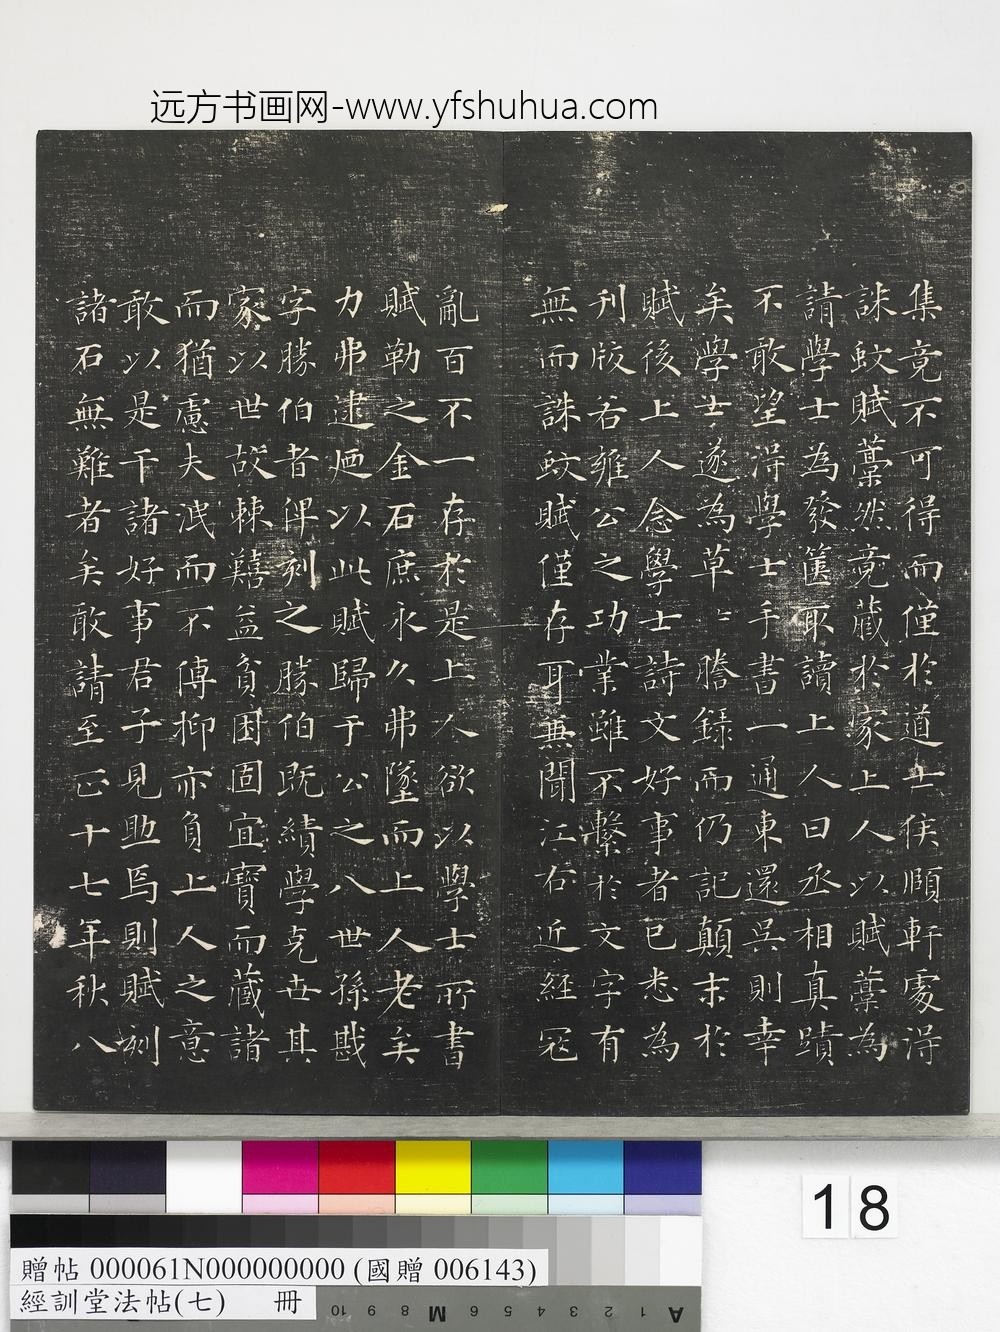 远方书画网-www.yfshuhua.com
集竟不可得而僅於道士侯頤軒處得
誅蚊賦藁然竟藏於家上人以賦藁為
請學士為發篋取讀上人曰丞相真蹟
不敢望得學士手書一通東還吳則幸
矣學士遂為草〻謄録而仍記顛末於
賦後上人念學士詩文好事者已悉為
刊版若雍公之功業雖不繫於文字有
無而誅蚊賦僅存耳兼聞江右近經寇
亂百不一存於是上人欲以學士所書
賦勒之金石庶永久弗墜而上人老矣
力弗逮廼以此賦歸于公之八世孫戡
字勝伯者俾刻之勝伯既績學克世其
家以世故棘囏益貧困固宜寶而藏諸
而猶慮夫泯而不傳抑亦負上人之意
敢以是干諸好事君子見助焉則賦刻
諸石無難者矣敢請至正十七年秋八
18
贈帖 000061N000000000 (國贈 006143)
經訓堂法帖(七) 冊
10 9 8 M 6 5 4 3 2 1 A